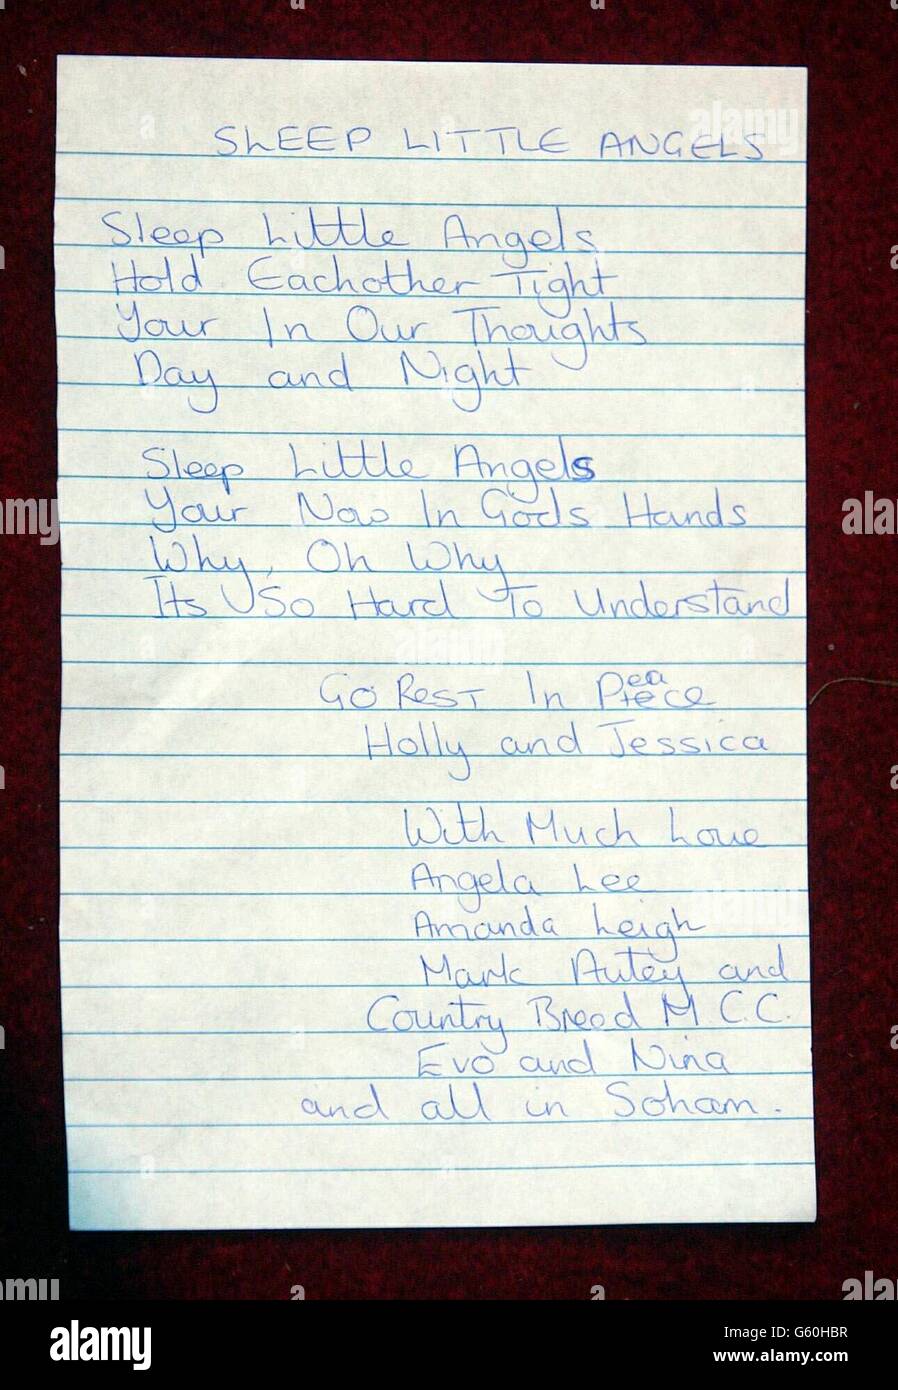 SLEEP LITTLE ANGELS
Sleep Little Angels
Hold Eachother Tight
Your In Our Thoughts
Day and Night
Sleep Little Angels
Your Now In Gods Hands
Why, Oh Why
Its So Hard To Understand
Go Rest In Peace
Holly and Jessica
With Much Love
Angela Lee
Amanda Leigh
Mark Autey and
Country Breed M.C.C.
Evo and Nina
and all in Soham.
alamy
Image ID: G60HBR
www.alamy.com